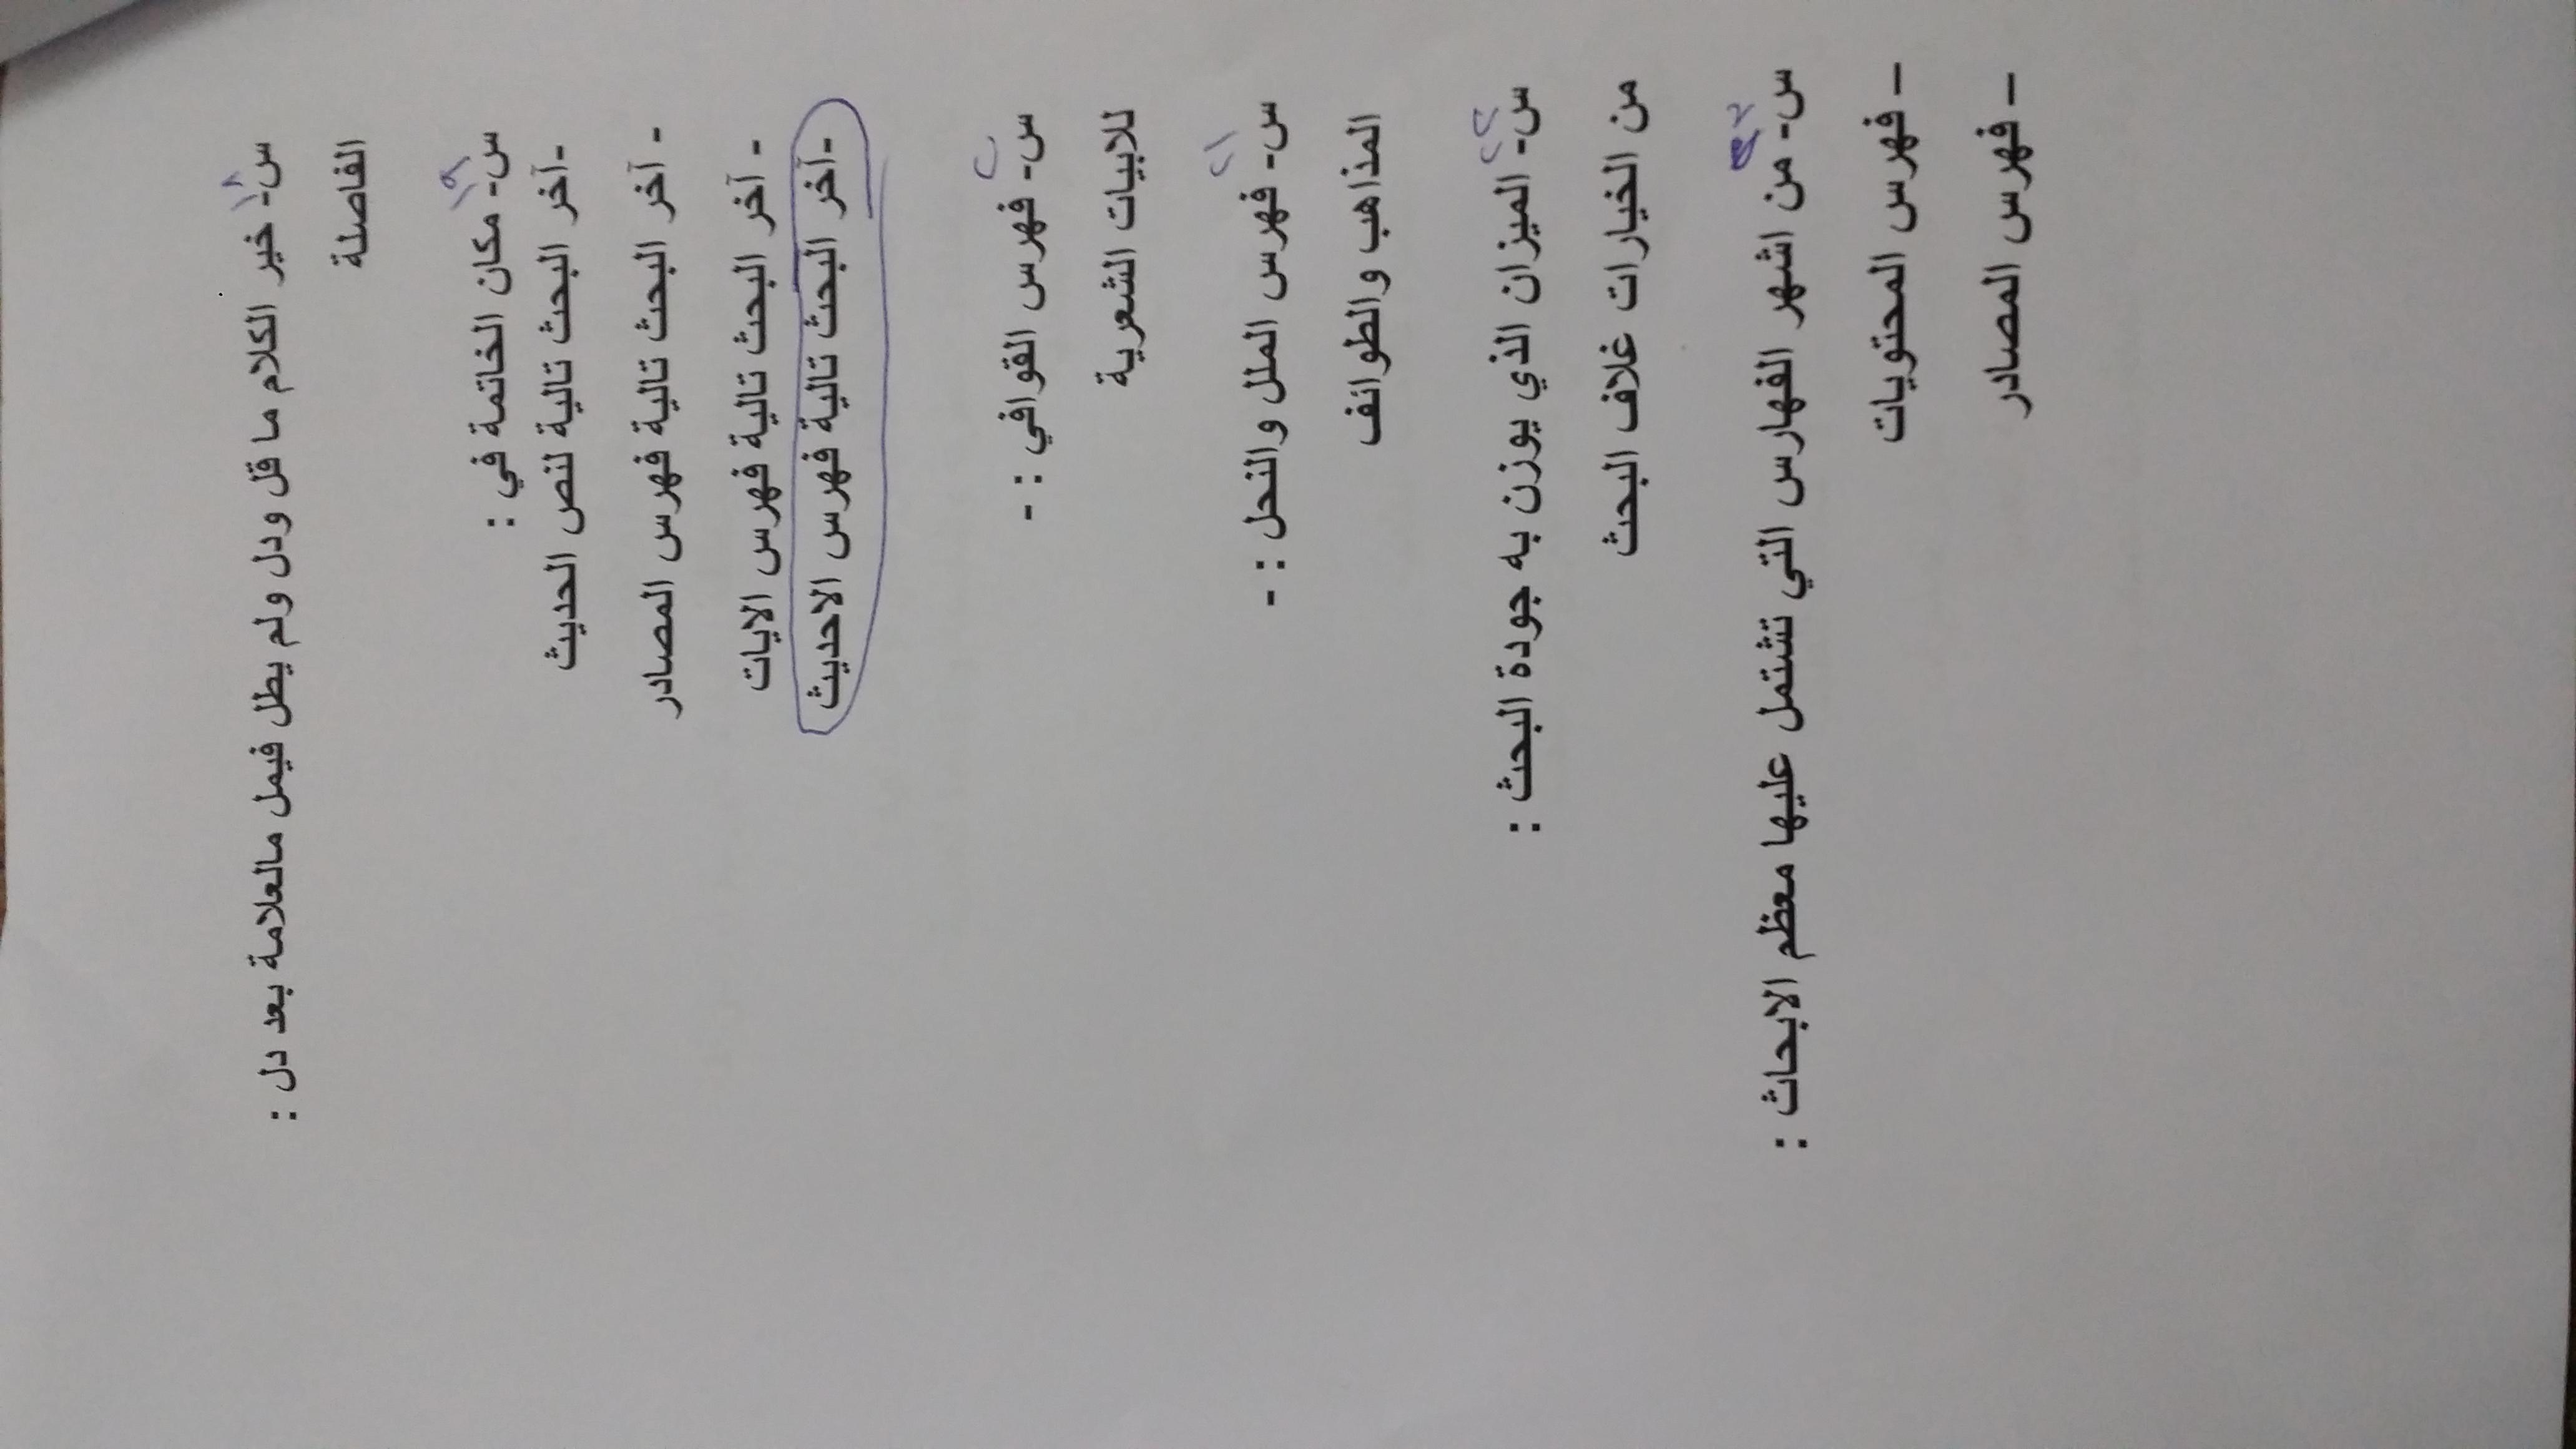 س١٨- خير الكلام ما قل ودل ولم يطل فيمل مالعلامة بعد دل :
الفاصلة
س١٩- مكان الخاتمة في :
-آخر البحث تالية لنص الحديث
- آخر البحث تالية فهرس المصادر
- آخر البحث تالية فهرس الايات
-آخر البحث تالية فهرس الاحديث
س- فهرس القوافي : -
للابيات الشعرية
س٢١- فهرس الملل والنحل : -
المذاهب والطوائف
س٢٢- الميزان الذي يوزن به جودة البحث :
من الخيارات غلاف البحث
س- من اشهر الفهارس التي تشتمل عليها معظم الابحاث :
– فهرس المحتويات
– فهرس المصادر